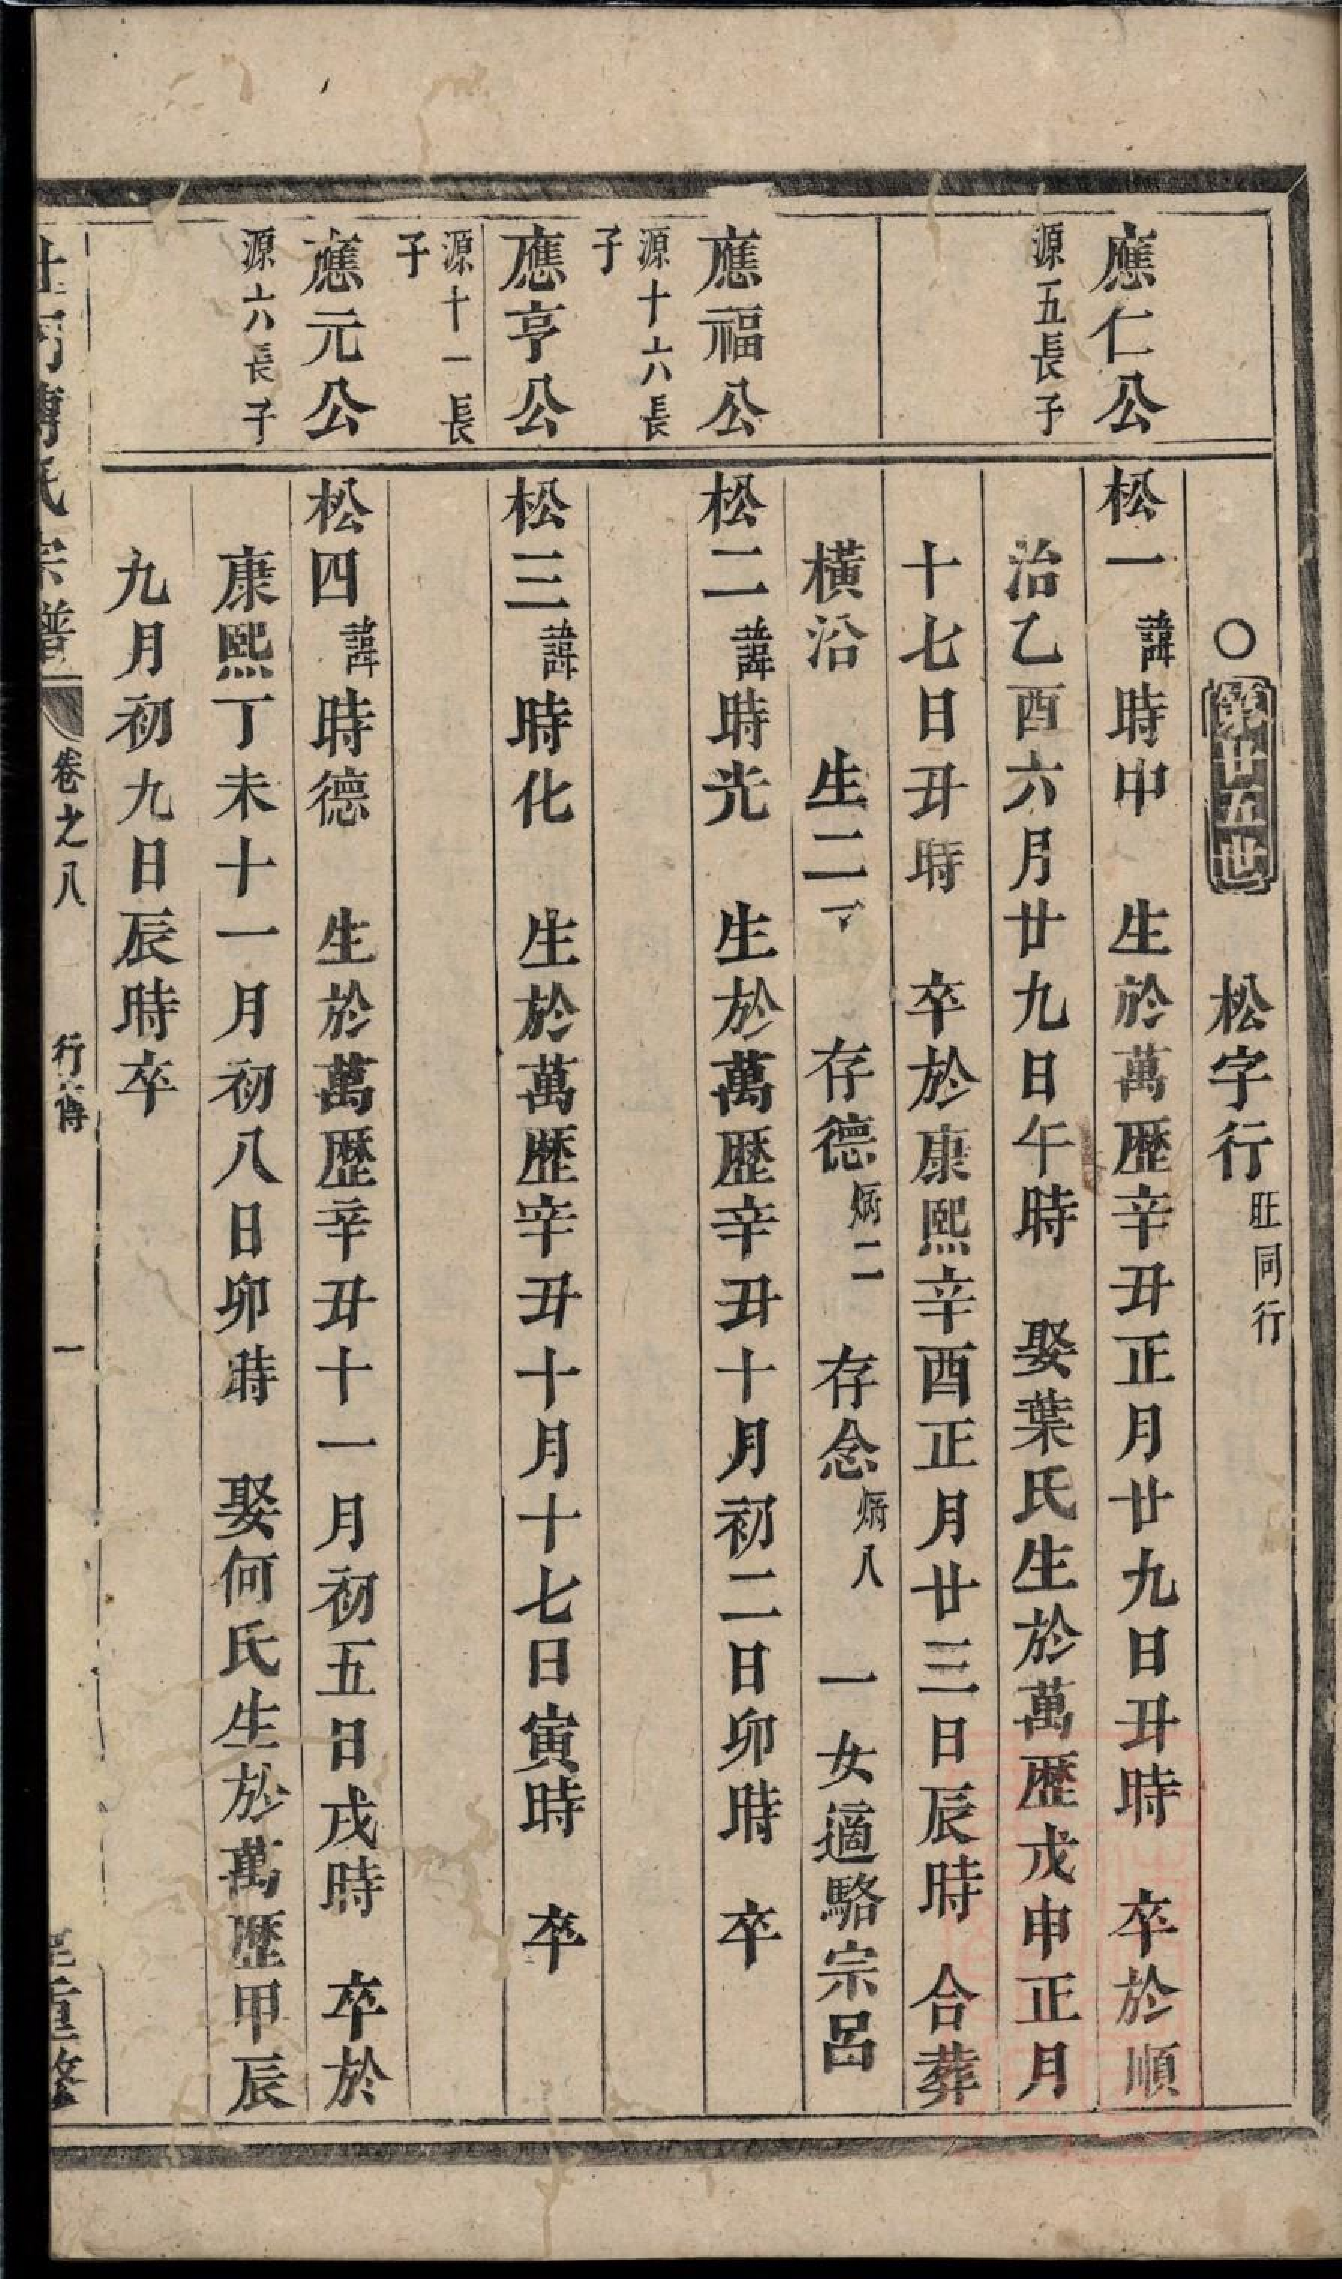 ○第廿五世 松字行旺同行
應仁公
源五長子
松一諱時中 生於萬歷辛丑正月廿九日丑時 卒於順
治乙酉六月廿九日午時 娶葉氏生於萬歷戊申正月
十七日丑時 卒於康熙辛酉正月廿三日辰時 合葬
橫沿 生二子 存德炳二 存念炳八 一女適駱宗呂
應福公
源十六長
子
松二諱時光 生於萬歷辛丑十月初二日卯時 卒
應亨公
源十一長
子
松三諱時化 生於萬歷辛丑十月十七日寅時 卒
應元公
源六長子
松四諱時德 生於萬歷辛丑十一月初五日戌時 卒於
康熙丁未十一月初八日卯時 娶何氏生於萬歷甲辰
九月初九日辰時卒
氏宗譜 卷之八 行傳 一 重修